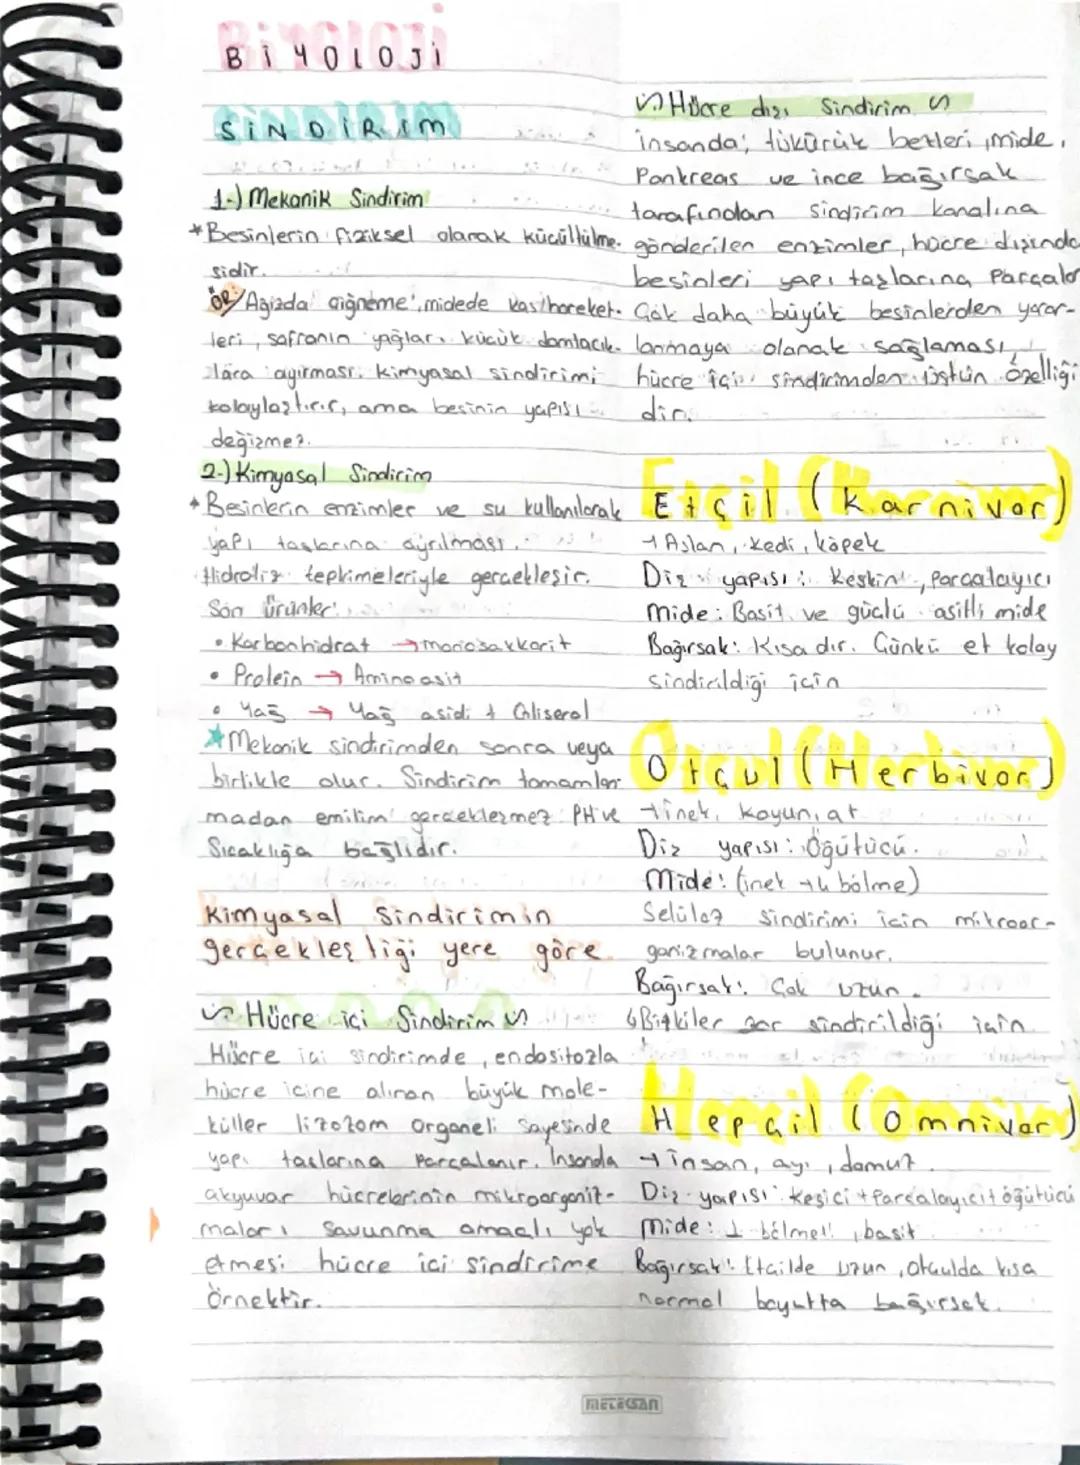 BİYOLOJİ
SİNDİRİM
1-) Mekanik Sindirim
*Besinlerin fiziksel olarak küçültülme-
sidir.
ÖR/ Ağızda çiğneme, midede kas hareket-
leri, safranın yağları küçük damlacık-
lara ayırması. kimyasal sindirimi
kolaylaştırır, ama besinin yapısı
değişmez.
2-) Kimyasal Sindirim
*Besinlerin enzimler ve su kullanılarak
yapı taşlarına ayrılması.
Hidroliz tepkimeleriyle gerçekleşir.
Son ürünler:
• Karbonhidrat → monosakkarit
• Protein → Amino asit
• Yağ → Yağ asidi + Gliserol
★Mekanik sindirimden sonra veya
birlikte olur. Sindirim tamamlan-
madan emilim gerçekleşmez. PH ve
Sıcaklığa bağlıdır.
Kimyasal Sindirimin
gerçekleştiği yere göre
Hücre içi Sindirim
Hücre içi sindirimde, endositozla
hücre içine alınan büyük mole-
küller lizozom organeli sayesinde
yapı taşlarına parçalanır. İnsanda
akyuvar hücrelerinin mikroorganiz-
maları savunma amaçlı yok
etmesi hücre içi sindirime
Örnektir.
Hücre dışı Sindirim
insanda; tükürük bezleri, mide,
Pankreas ve ince bağırsak
tarafından sindirim kanalına
gönderilen enzimler, hücre dışında
besinleri yapı taşlarına Parçalar
Çok daha büyük besinlerden yarar-
lanmaya olanak sağlaması,
hücre içi sindirimden üstün özelliği
dir.
Etçil (Karnivor)
→ Aslan, kedi, köpek
Diş yapısı: Keskin, parçalayıcı
Mide: Basit ve güçlü asitli mide
Bağırsak: Kısadır. Çünkü et kolay
sindirildiği için
Otçul (Herbivor)
→ inek, koyun, at
Diş yapısı: Öğütücü.
Mide: (inek → 4 bölme)
Selüloz sindirimi için mikroor-
ganizmalar bulunur.
Bağırsak: Çok uzun.
↳Bitkiler zor sindirildiği için
Hepçil (Omnivor)
→ insan, ayı, domuz.
Diş yapısı: kesici + parçalayıcı + öğütücü
Mide: 1 bölmeli, basit
Bağırsak: Etçilde uzun, otçulda kısa
normal boyutta bağırsak.
METEKSAN